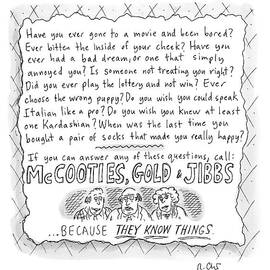 Have you ever gone to a movie and been bored?
Ever bitten the inside of your cheek? Have you
ever had a bad dream, or one that simply
annoyed you? Is someone not treating you right?
Did you ever play the lottery and not win? Ever
choose the wrong puppy? Do you wish you could speak
Italian like a pro? Do you wish you knew at least
one Kardashian? When was the last time you
bought a pair of socks that made you really happy?
If you can answer any of these questions, call:
McCOOTIES, GOLD & JIBBS
...BECAUSE THEY KNOW THINGS.
R. Chs